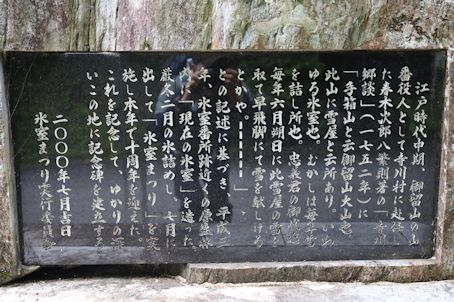 江戸時代中期 御留山の山
番役人として寺川村に赴任し
た春木次郎八繁則著の「寺川
郷談」(一七五二年)に
「手箱山と云御留山大山也
此山に雪屋と云所あり。いわ
ゆる氷室也。むかしは毎年雪
を詰し所也。忠義君の御代迄
毎年六月朔日に此雪屋の雪を
取て早飛脚にて雪を献しける
とかや。
との記述に基づき、平成三
年、氷室番所跡近くの
に「現在の氷室」を造った。
厳冬二月の氷詰めし、七月に
出して「氷室まつり」を実
施し本年で十周年を迎えた。
これを記念して、ゆかりの深
いこの地に記念碑を建立する
二〇〇〇年七月吉日
氷室まつり実行委員会